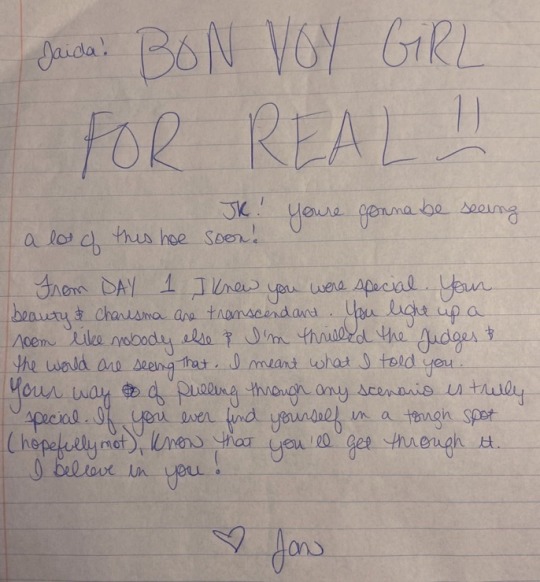 Jaida! BON VOY GIRL
FOR REAL !!
JK! Youre gonna be seeing
a lot of this hoe soon!
From DAY 1 I knew you were special. Your
beauty & charisma are transcendant. You light up a
room like nobody else & I'm thrilled the judges &
the world are seeing that. I meant what I told you.
Your way of pulling through any scenario is truly
special. If you ever find yourself in a tough spot
(hopefully not), know that you'll get through it.
I believe in you!
♡ Jan